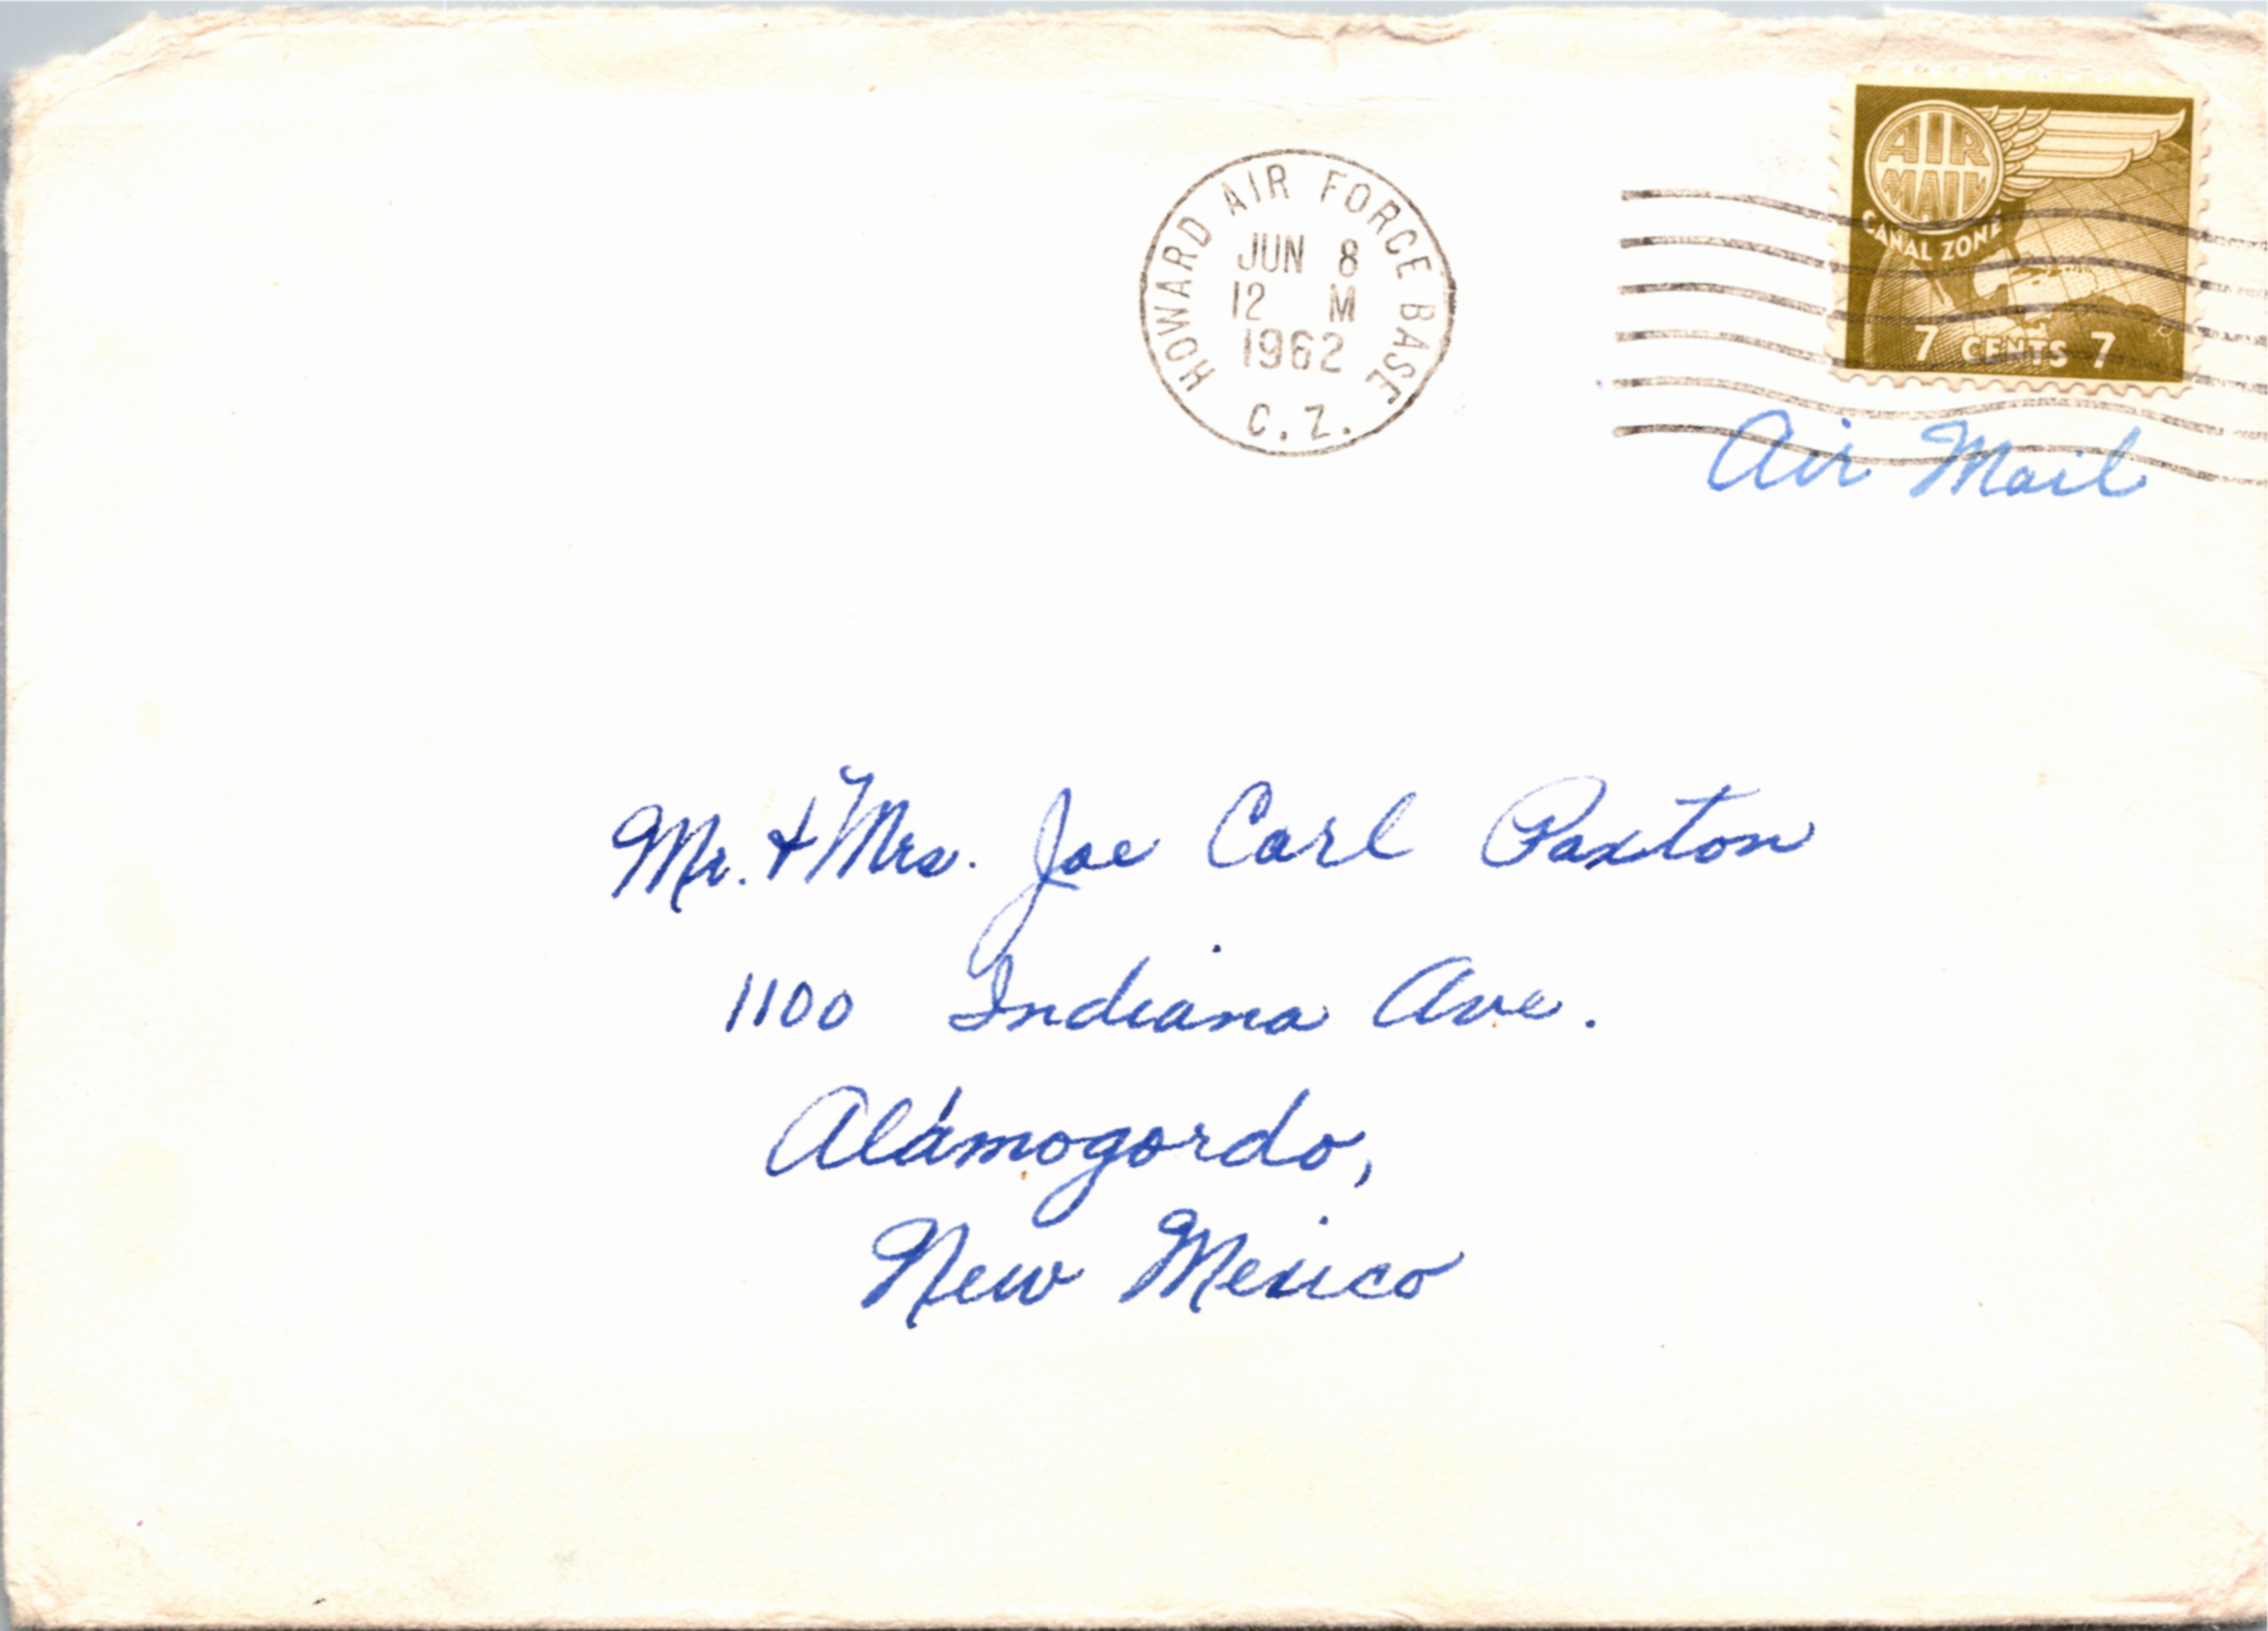 HOWARD AIR FORCE BASE
JUN 8
12 M
1962
C. Z.
AIR
MAIL
CANAL ZONE
7 CENTS 7
Air Mail
Mr. & Mrs. Joe Carl Paxton
1100 Indiana Ave.
Alamogordo,
New Mexico